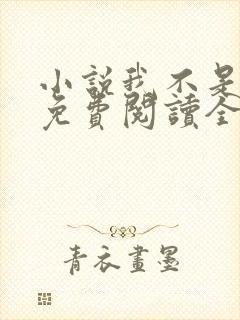 小說我不是
免費閱讀全
青衣畫墨